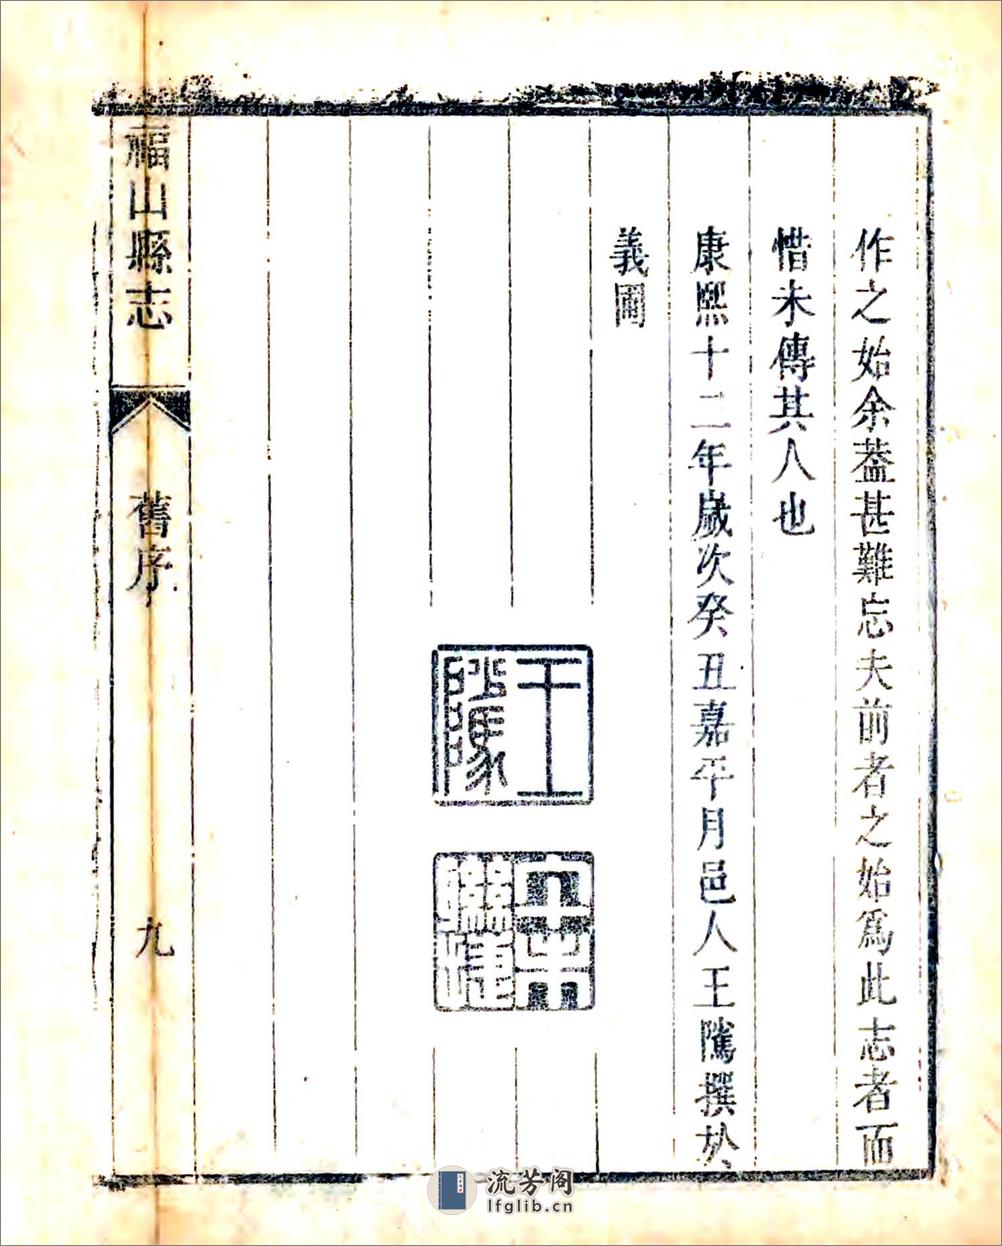 作之始余葢甚難忘夫前者之始爲此志者而
惜未傳其人也
康熙十二年歲次癸丑嘉平月邑人王隲撰於
義圃
王隲
福山縣志
舊序
九
流芳阁
lfglib.cn